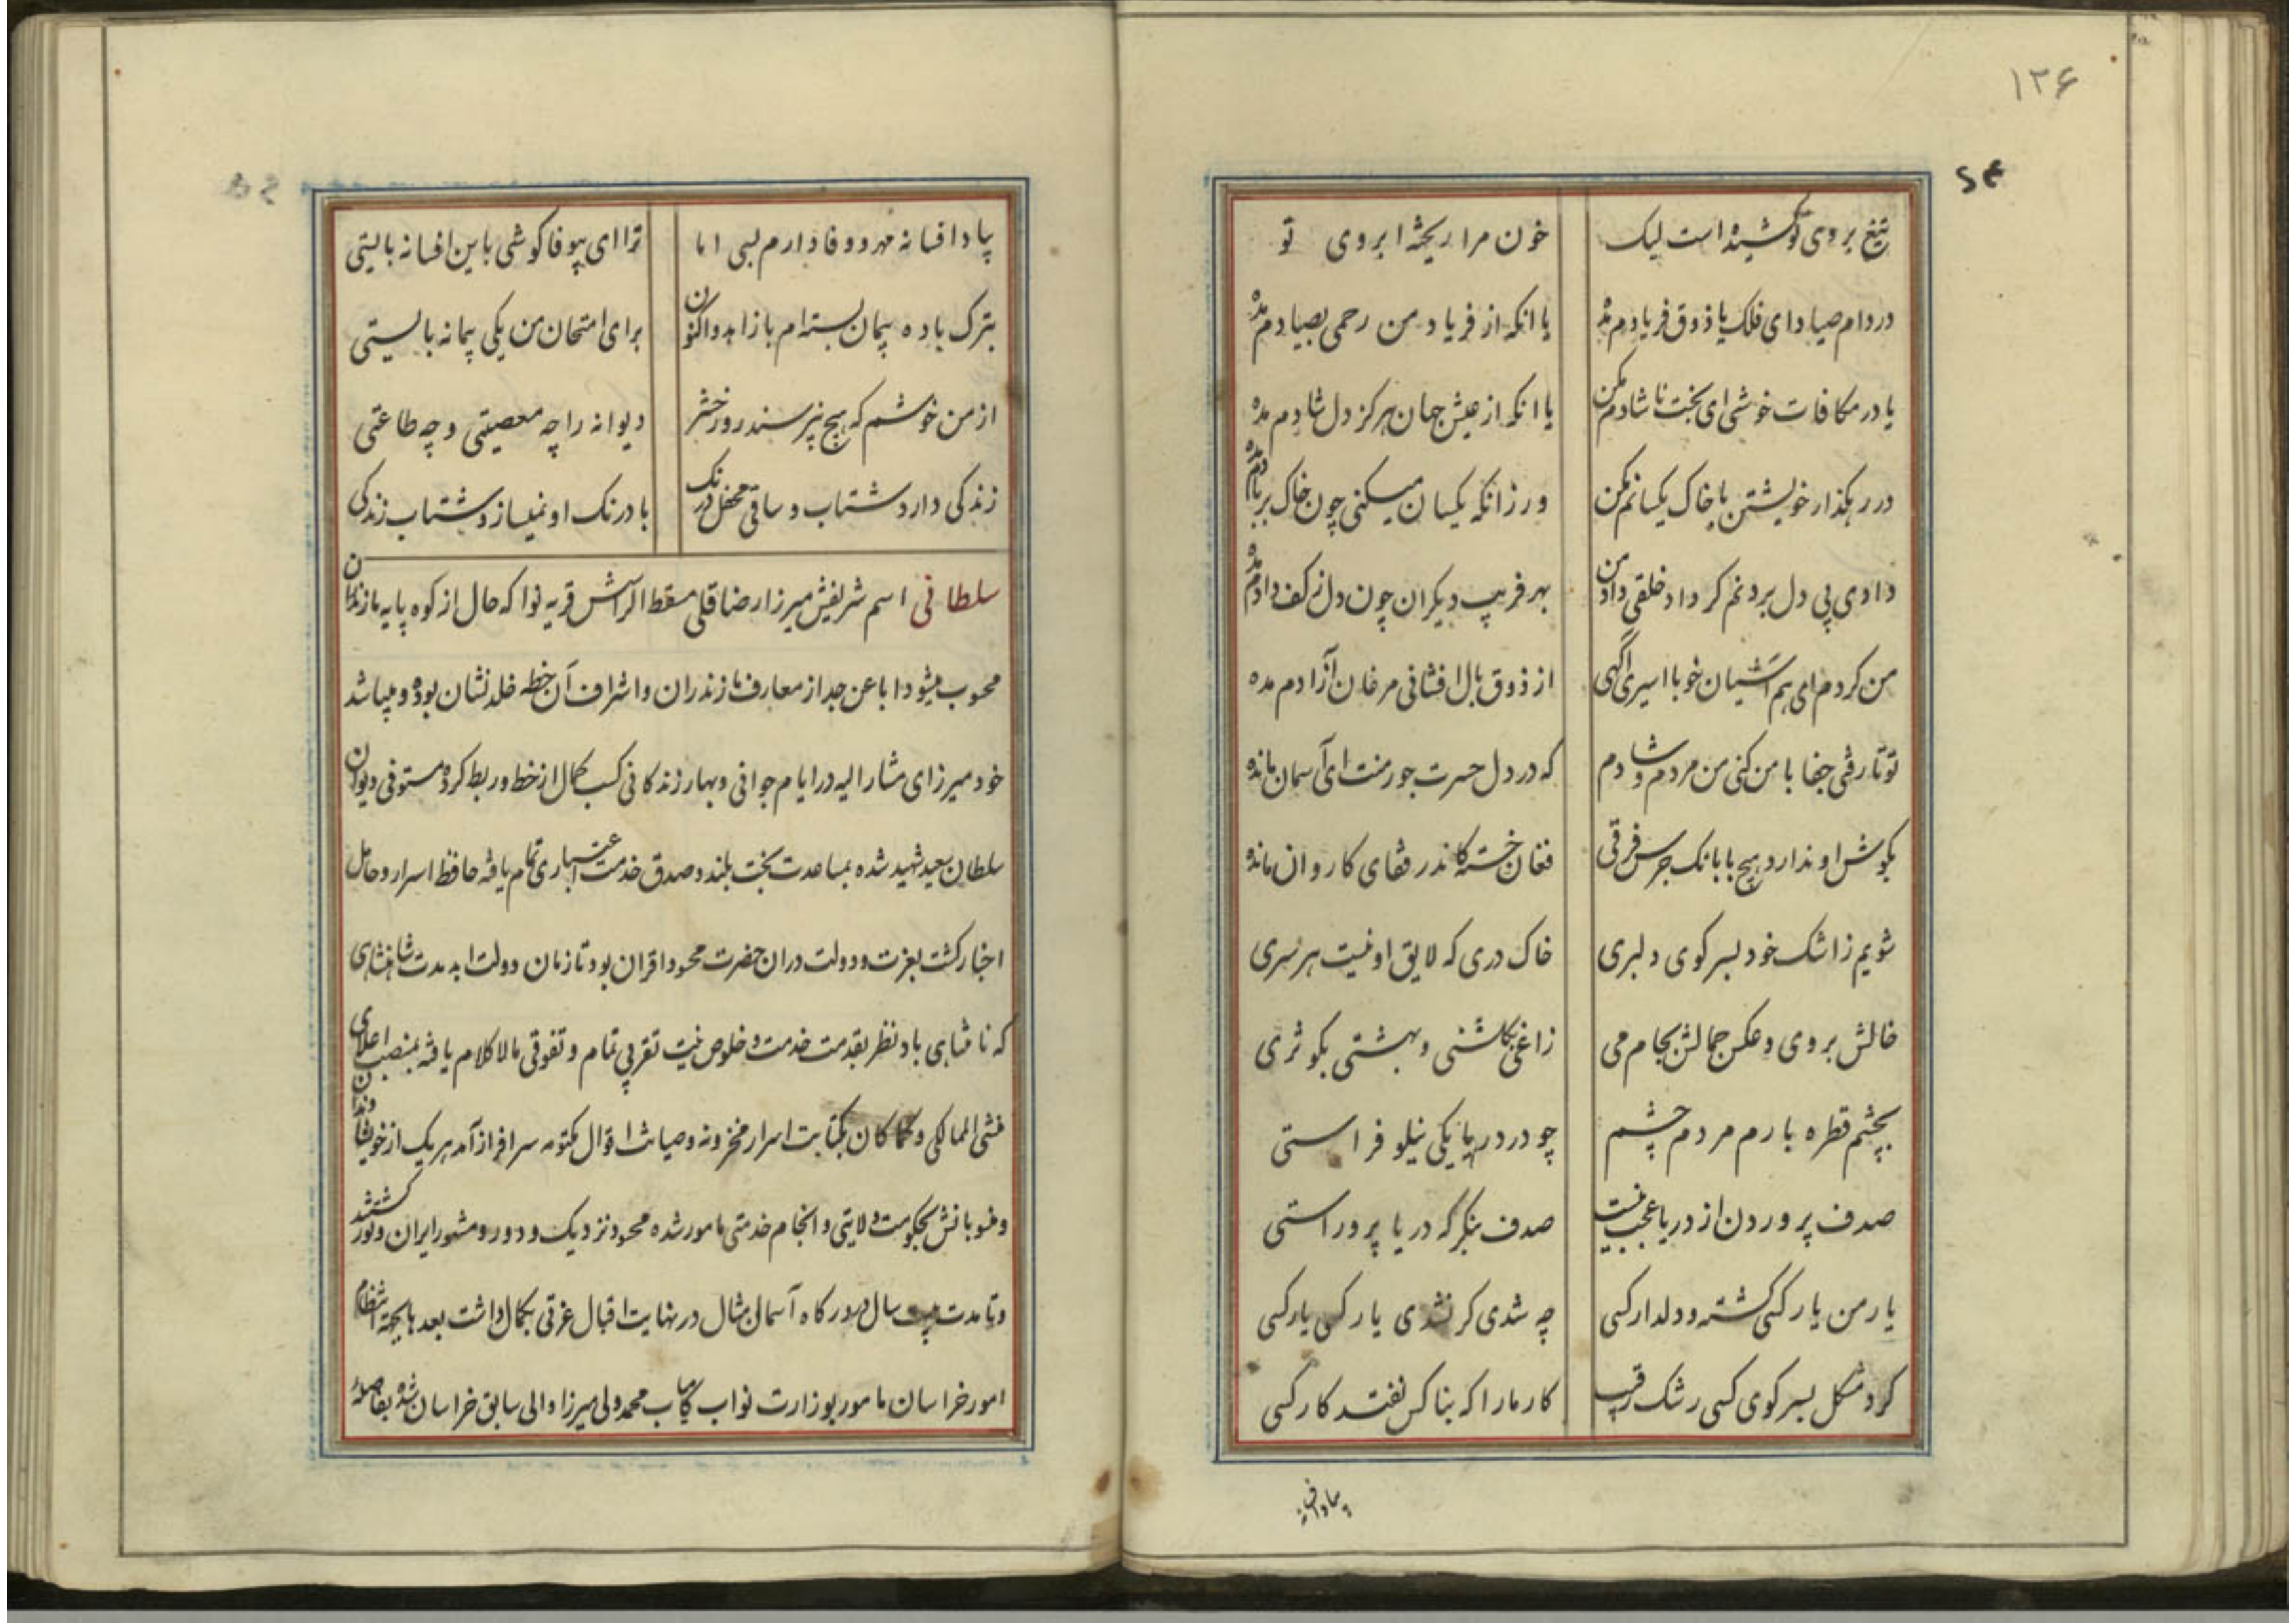 ۱۲۶
تیغ بروی تو کشیده است لیک خون مرا ریخته ابروی تو
در دام صیاد ای فلک یا ذوق فریادم مده یا انکه از فریاد من رحمی بصیادم مده
یا در مکافات خوشی ای بخت ناشادم مکن یا انکه از عیش جهان هرکز دل شادم مده
در رهکذار خویشتن با خاک یکسانم مکن ور زانکه یکسان میکنی چون خاک بر بادم مده
دادی پی دل بردنم کر داد خلقی داد من بهر فریب دیکران چون دل ز کف دادم مده
من کردم ای هم آشیان خو با اسیری اکهی از ذوق بال افشانی مرغان آزادم مده
تو تا رفتی جفا با من کنی من مردم و شادم که در دل حسرت جور منت ای آسمان مانده
بکوش او ندارد هیچ با بانک جرس فرقی فغان خسته کاندر قفای کاروان مانده
شویم ز اشک خود بسر کوی دلبری خاک دری که لایق او نیست هر سری
خالش بروی و عکس جمالش بجام می زاغی بکلشنی و بهشتی بکوثری
بچشم قطره بارم مردم چشم چو در دریا یکی نیلوفراستی
صدف پروردن از دریا عجب نیست صدف بنکر که دریا پروراستی
یار من یار کسی کشته و دلدار کسی چه شدی کر نشدی یار کسی یار کسی
کرد مشکل بسر کوی کسی رشک رقیب کار ما را که بناکس نفتد کار کسی
بیا و افسانه
بیا و افسانه مهر و وفا دارم بسی اما ترا ای بیوفا کوشی باین افسانه بایستی
بترک باده پیمان بسته‌ام با زاهد و اکنون برای امتحان من یکی پیمانه بایستی
از من خوشم که هیچ نپرسند روز حشر دیوانه را چه معصیتی و چه طاعتی
زندکی دارد شتاب و ساقی محفل درنک با درنک او نمیسازد شتاب زندکی
سلطانی اسم شریفش میرزا رضا قلی مسقط الراسش قریه نوا که حال از کوه پایه مازندران
محسوب میشود ابا عن جد از معارف مازندران و اشراف آن خطه خلد نشان بوده و میباشد
خود میرزای مشار الیه در ایام جوانی و بهار زندکانی کسب کمال از خط و ربط کرده مستوفی دیوان
سلطان سعید شهید شده بمساعدت بخت بلند و صدق خدمت اعتباری تمام یافته حافظ اسرار و حامل
اخبار کشت بعزت و دولت در ان حضرت محسود اقران بود تا زمان دولت ابد مدت شاهنشاهی
که نامتناهی باد نظر بقدمت خدمت و خلوص نیت تقربی تمام و تفوقی مالا کلام یافته بمنصب اعلای
منشی الممالکی و کما کان بکتابت اسرار مخزونه و صیانت اقوال مکتومه سرافراز آمد هر یک از خویشاوندان
و منسوبانش بحکومت ولایتی و انجام خدمتی مامور شده محسود نزدیک و دور و مشهور ایران و تور کشتند
و تا مدت بیست سال در درکاه آسمان مثال در نهایت اقبال عزتی بکمال داشت بعدها بجهة انتظام
امور خراسان مامور بوزارت نواب کامیاب محمد ولی میرزا والی سابق خراسان شده بفاصلهٔ